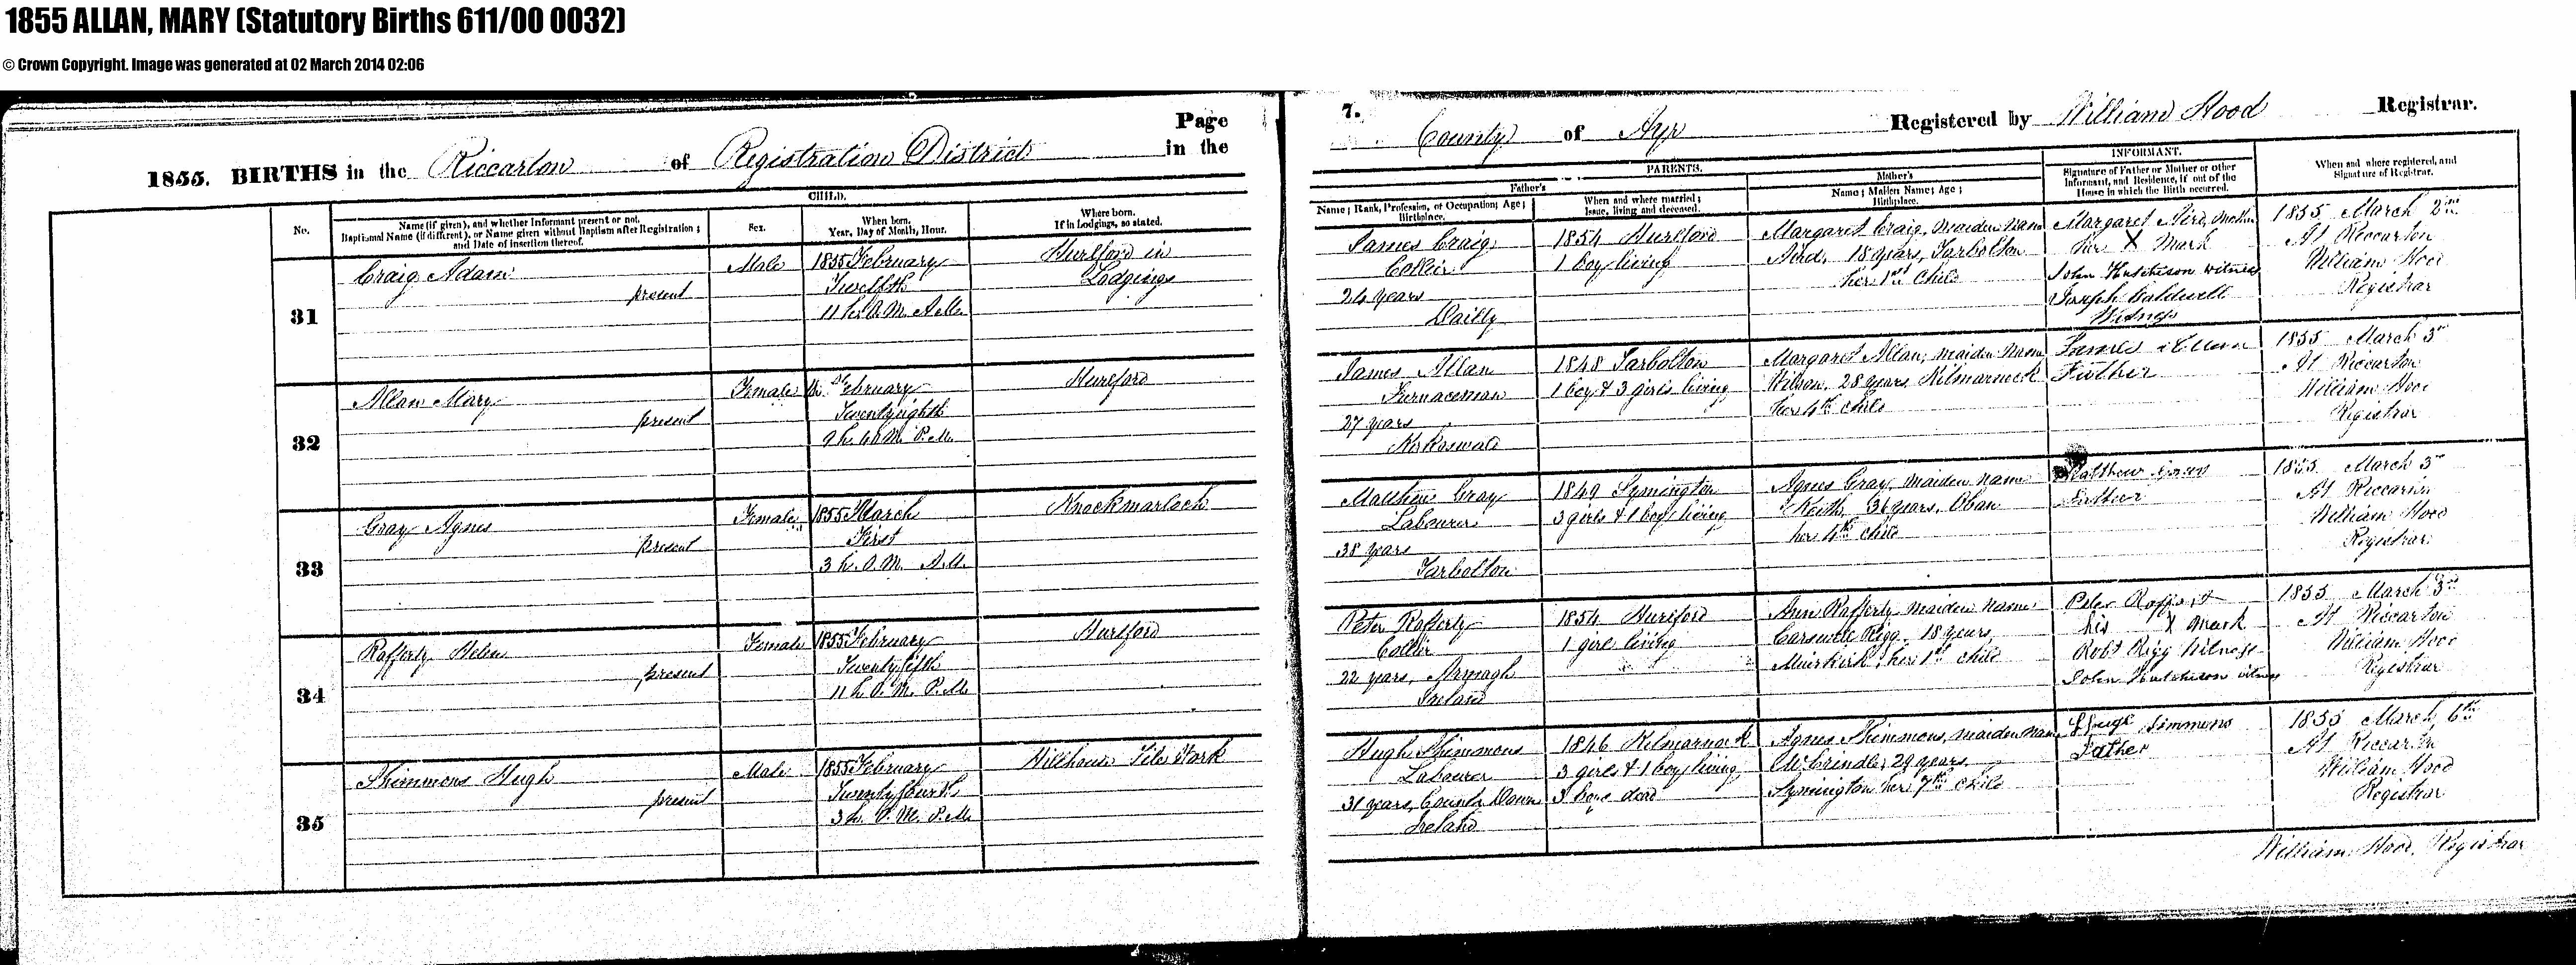 1855 ALLAN, MARY (Statutory Births 611/00 0032)
© Crown Copyright. Image was generated at 02 March 2014 02:06
Page
1855. BIRTHS in the Riccarton of Registration District in the
CHILD.
No.
Name (if given), and whether Informant present or not.
Baptismal Name (if different), or Name given without Baptism after Registration;
and Date of insertion thereof.
Sex.
When born.
Year, Day of Month, Hour.
Where born.
If in Lodgings, so stated.
31
Craig Adam
present
Male
1855 February
Twelfth
11 h. 0 M. A.M.
Hurlford in
Lodgings
32
Allan Mary
present
Female
Do. February
Twenty eighth
9 h. 40 M. P.M.
Hurlford
33
Gray Agnes
present
Female
1855 March
First
3 h. 0 M. A.M.
Knockmarloch
34
Rafferty Helen
present
Female
1855 February
Twenty fifth
11 h. 0 M. P.M.
Hurlford
35
Shimmons Hugh
present
Male
1855 February
Twenty fourth
3 h. 0 M. P.M.
Hillhouse Tile Work
7.
County of Ayr Registered by William Hood Registrar.
PARENTS.
Father's
Name; Rank, Profession, or Occupation; Age;
Birthplace.
When and where married;
Issue, living and deceased.
Mother's
Name; Maiden Name; Age;
Birthplace.
INFORMANT.
Signature of Father or Mother or other
Informant, and Residence, if out of the
House in which the Birth occurred.
When and where registered, and
Signature of Registrar.
James Craig
Collier
24 years
Dailly
1854 Hurlford
1 boy living
Margaret Craig, maiden name
Aird, 18 years, Tarbolton
her 1st child
Margaret Aird, Mother
her X Mark
John Hutchison witness
Joseph Caldwell
Witness
1855 March 2nd
At Riccarton
William Hood
Registrar
James Allan
Furnaceman
27 years
Kirkoswald
1848 Tarbolton
1 boy & 3 girls living
Margaret Allan, maiden name
Wilson, 28 years Kilmarnock
her 4th child
James Allan
Father
1855 March 3rd
At Riccarton
William Hood
Registrar
Matthew Gray
Labourer
38 years
Tarbolton
1849 Symington
3 girls & 1 boy living
Agnes Gray, maiden name
Keith, 36 years, Oban
her 4th child
Matthew Gray
Father
1855 March 3rd
At Riccarton
William Hood
Registrar
Peter Rafferty
Collier
22 years, Armagh
Ireland
1854 Hurlford
1 girl living
Ann Rafferty maiden name
Rigg, 18 years,
Muirkirk, her 1st child
Peter Rafferty
his X Mark
Robt Rigg Witness
John Hutchison witness
1855 March 3rd
At Riccarton
William Hood
Registrar
Hugh Shimmons
Labourer
31 years, County Down
Ireland
1846 Kilmarnock
3 girls & 1 boy living
3 boys dead
Agnes Shimmons, maiden name
McCrindle, 29 years
Symington her 7th child
Hugh Simmons
Father
1855 March 6th
At Riccarton
William Hood
Registrar
William Hood, Registrar